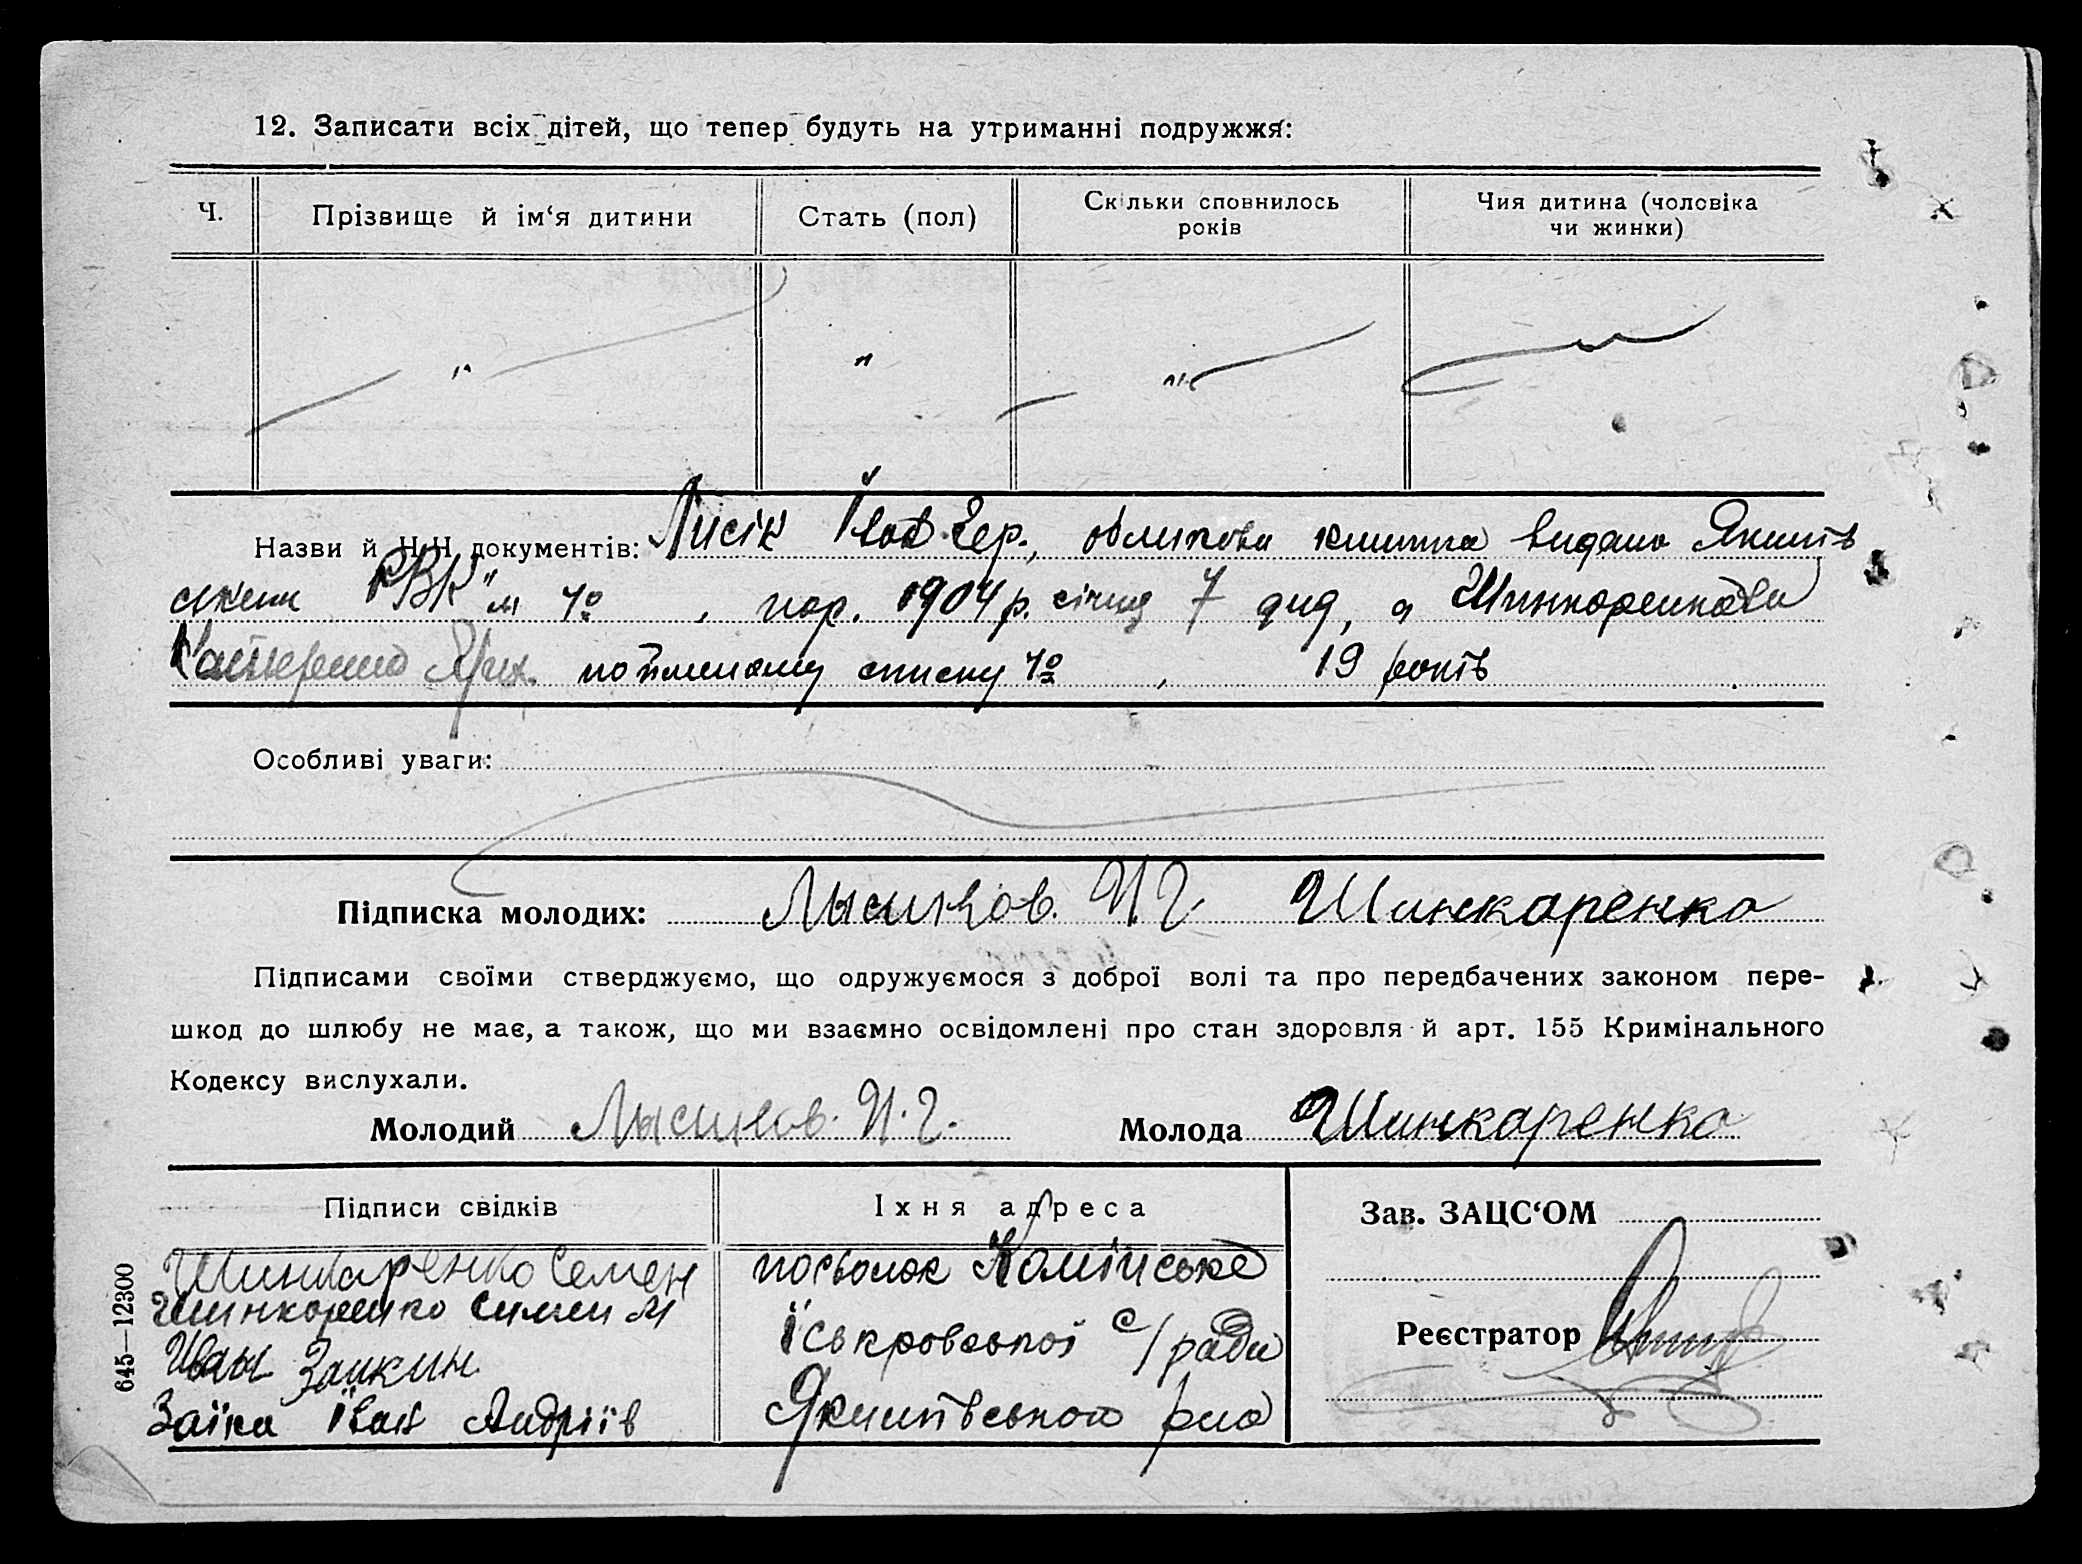 12. Записати всіх дітей, що тепер будуть на утриманні подружжя:
Ч.
Прізвище й ім‘я дитини
Стать (пол)
Скільки сповнилось
років
Чия дитина (чоловіка
чи жинки)
" " "
Назви й Н.Н документів: Лисік Іван Гер., облікова книжка видано Якимів
ским РВК"м №, нар. 1904 р. січня 7 дня, а Шинкаренкова
Катерина по іменному списку №, 19 років
Особливі уваги:
Підписка молодих: Лысиков. И Г. Шинкаренко
Підписами своїми стверджуємо, що одружуємося з доброї волі та про передбачених законом пере-
шкод до шлюбу не має, а також, що ми взаємно освідомлені про стан здоровля й арт. 155 Кримінального
Кодексу вислухали.
Молодий Лысиков. И. Г. Молода Шинкаренко
Підписи свідків
Іхня адреса
Зав. ЗАЦС‘ОМ
Шинкаренко Семен
Шинкаренко Симен М
Иван Заикин
Заїка Іван Андріїв
посьолок
с/ради
Якимівського р-на
Реєстратор
645—12300